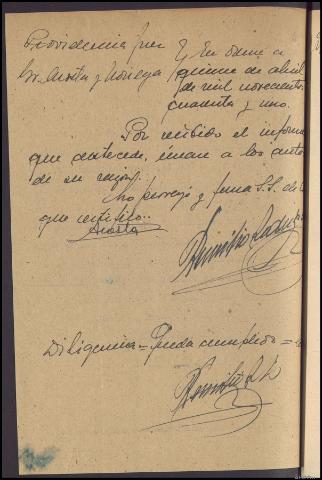 Providencia Juez
Sr. Acosta y Noriega
En Orense a
quince de abril
de mil novecientos
cuarenta y uno.
Por recibido el informe
que antecede, únase a los autos
de su razón.
Lo proveyó y firma S.S. de lo
que certifico..
Acosta
Diligencia = Queda cumplido =